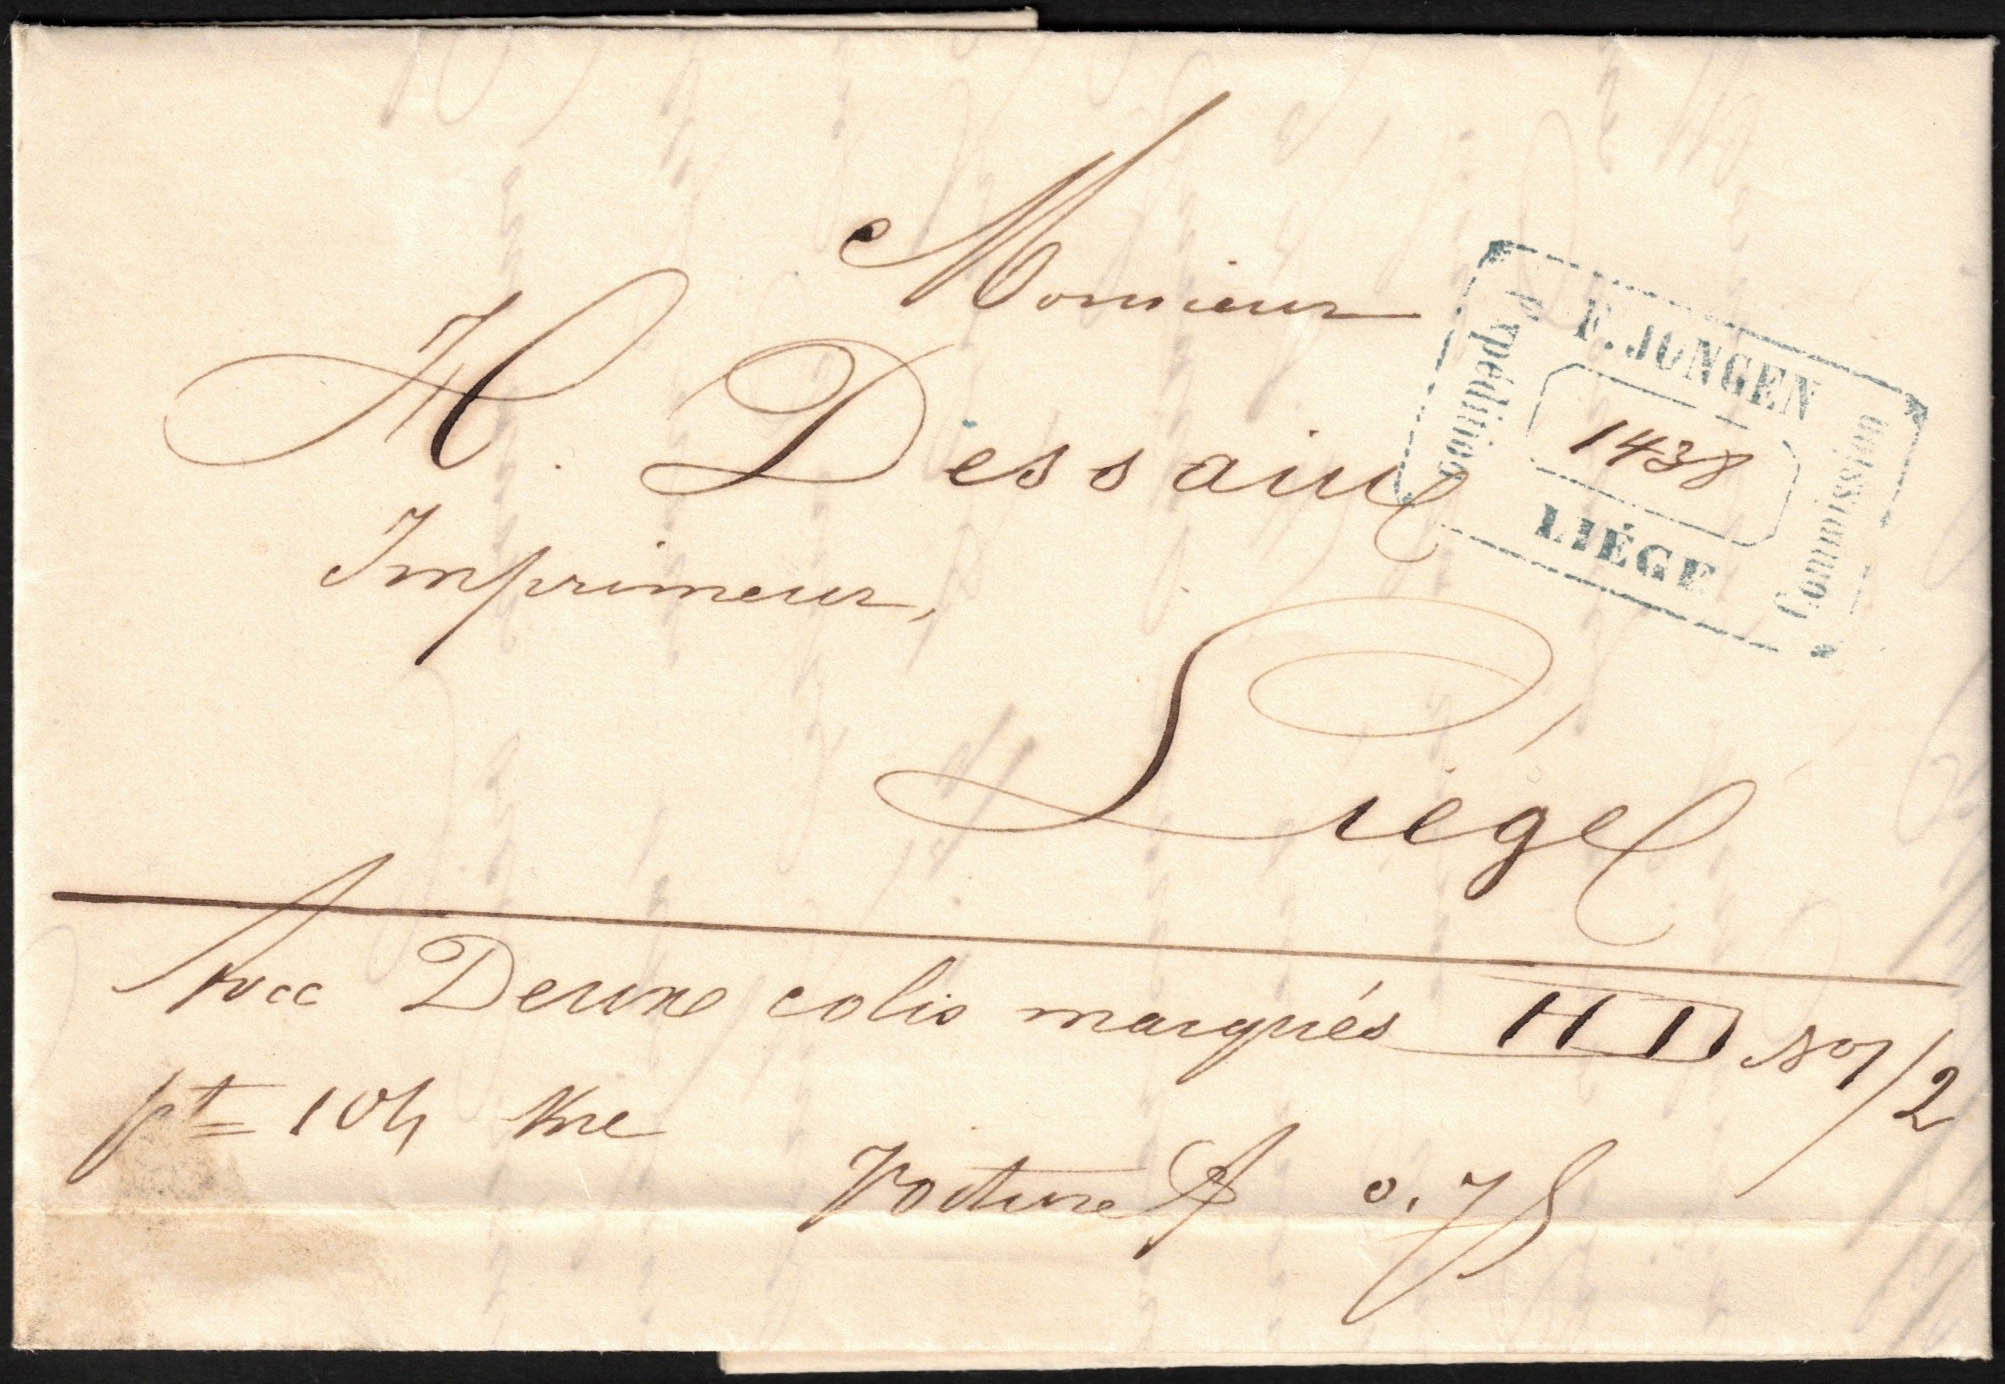 Monsieur
H. Dessain
Imprimeur,
Liége
F. JONGEN
Expédition
1438
Commission
LIÉGE
Avec Deux colis marqués HD No 1/2
pt 104 Kce
Voiture f 0.75